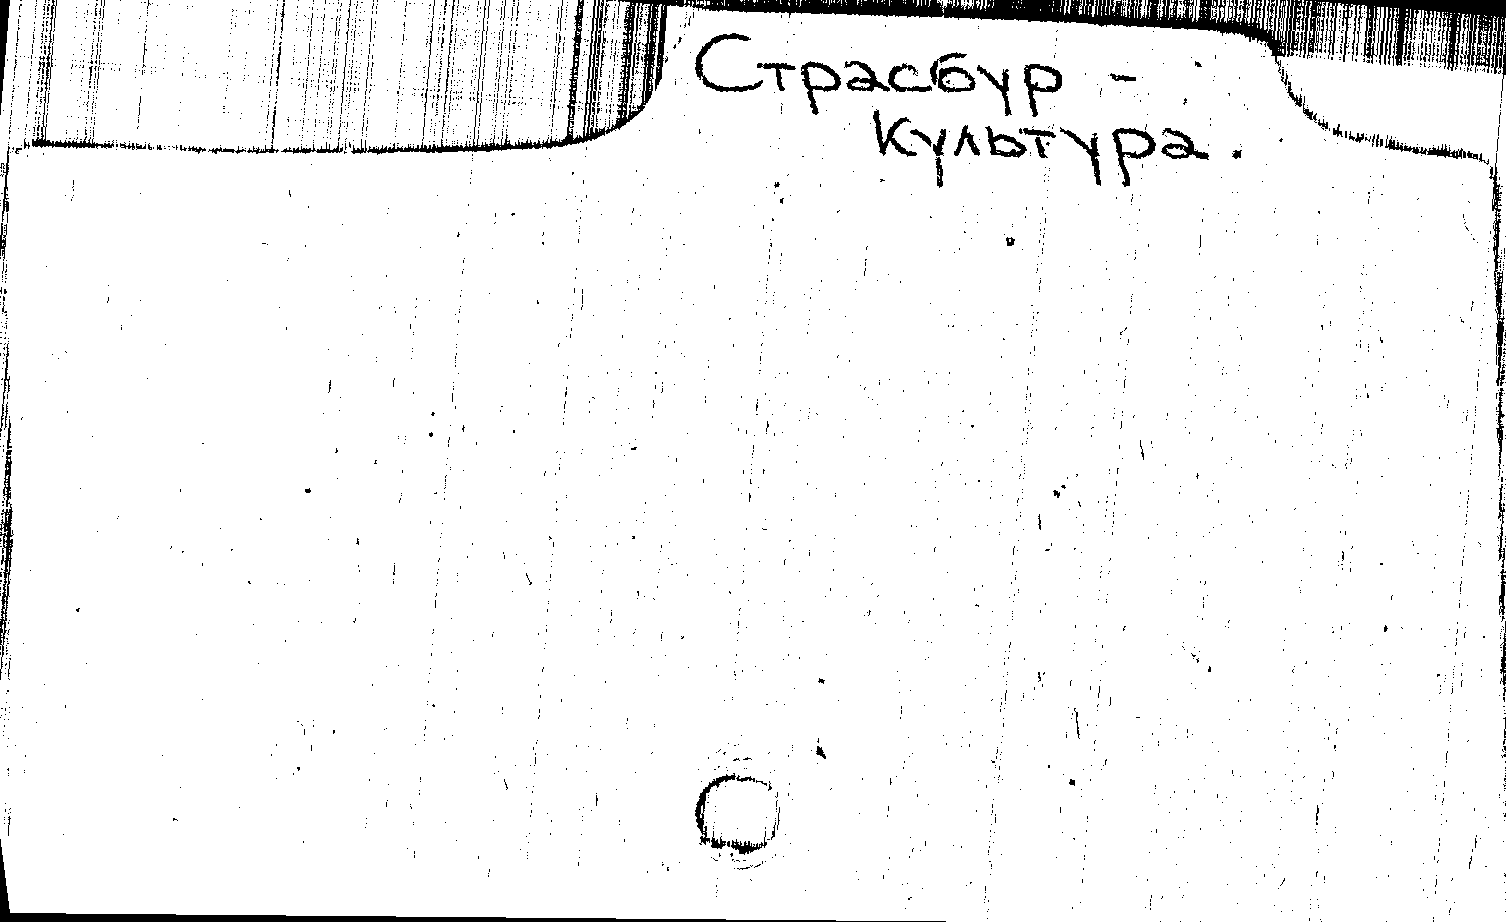 Страсбур -
культура.